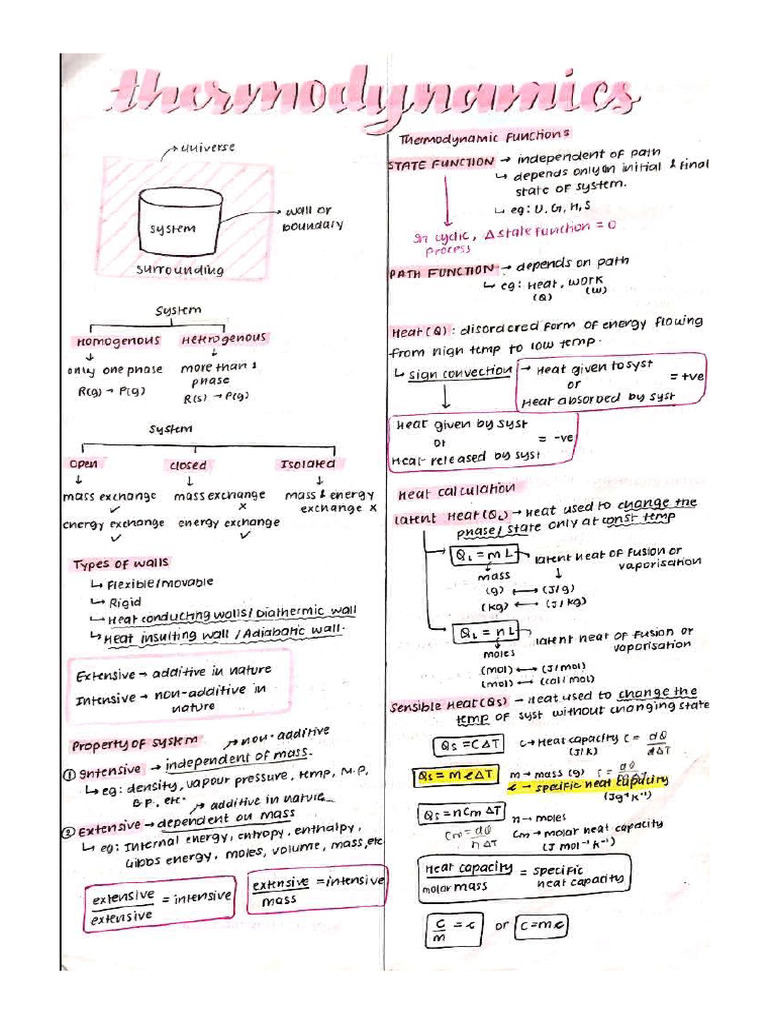 thermodynamics
universe
system
wall or
boundary
surrounding
System
Homogenous
Hetrogenous
only one phase
R(g) → P(g)
more than 1
phase
R(s) → P(g)
System
Open
closed
Isolated
mass exchange ✓
energy exchange ✓
mass exchange x
energy exchange ✓
mass & energy
exchange x
Types of walls
↳ Flexible/movable
↳ Rigid
↳ Heat conducting walls/Diathermic wall
↳ Heat insulting wall /Adiabatic wall.
Extensive → additive in nature
Intensive → non-additive in
nature
Property of system
→ non-additive
① Intensive → independent of mass.
↳ eg: density, vapour pressure, temp, M.P,
B.P, etc.
→ additive in nature
② Extensive → dependent on mass
↳ eg: Internal energy, entropy, enthalpy,
Gibbs energy, moles, volume, mass, etc
extensive/extensive = intensive
extensive/mass = intensive
Thermodynamic Functions
STATE FUNCTION → independent of path
↳ depends only on initial & final
state of system.
↳ eg: U, G, H, S
In cyclic, Δ state function = 0
process
PATH FUNCTION → depends on path
↳ eg: Heat, work
(Q) (W)
Heat (Q) : disordered form of energy flowing
from high temp to low temp.
↳ sign convection → Heat given to syst
or = +ve
Heat absorbed by syst
Heat given by syst
or = -ve
Heat released by syst
Heat calculation
Latent Heat (QL) → Heat used to change the
phase/state only at const temp
QL = mL → latent heat of fusion or
vaporisation
mass
(g) ↔ (J/g)
(kg) ↔ (J/kg)
QL = nL → latent heat of fusion or
vaporisation
moles
(mol) ↔ (J/mol)
(mol) ↔ (cal/mol)
Sensible Heat (Qs) → Heat used to change the
temp of syst without changing state
Qs = CΔT C → Heat capacity C = dQ/dΔT
(J/K)
Qs = mcΔT m → mass (g)
c → specific heat capacity
(Jg⁻¹K⁻¹)
Qs = nCmΔT n → moles
Cm = dQ/nΔT Cm → molar heat capacity
(J mol⁻¹ K⁻¹)
Heat capacity/molar mass = specific
heat capacity
C/m = c or C = mc